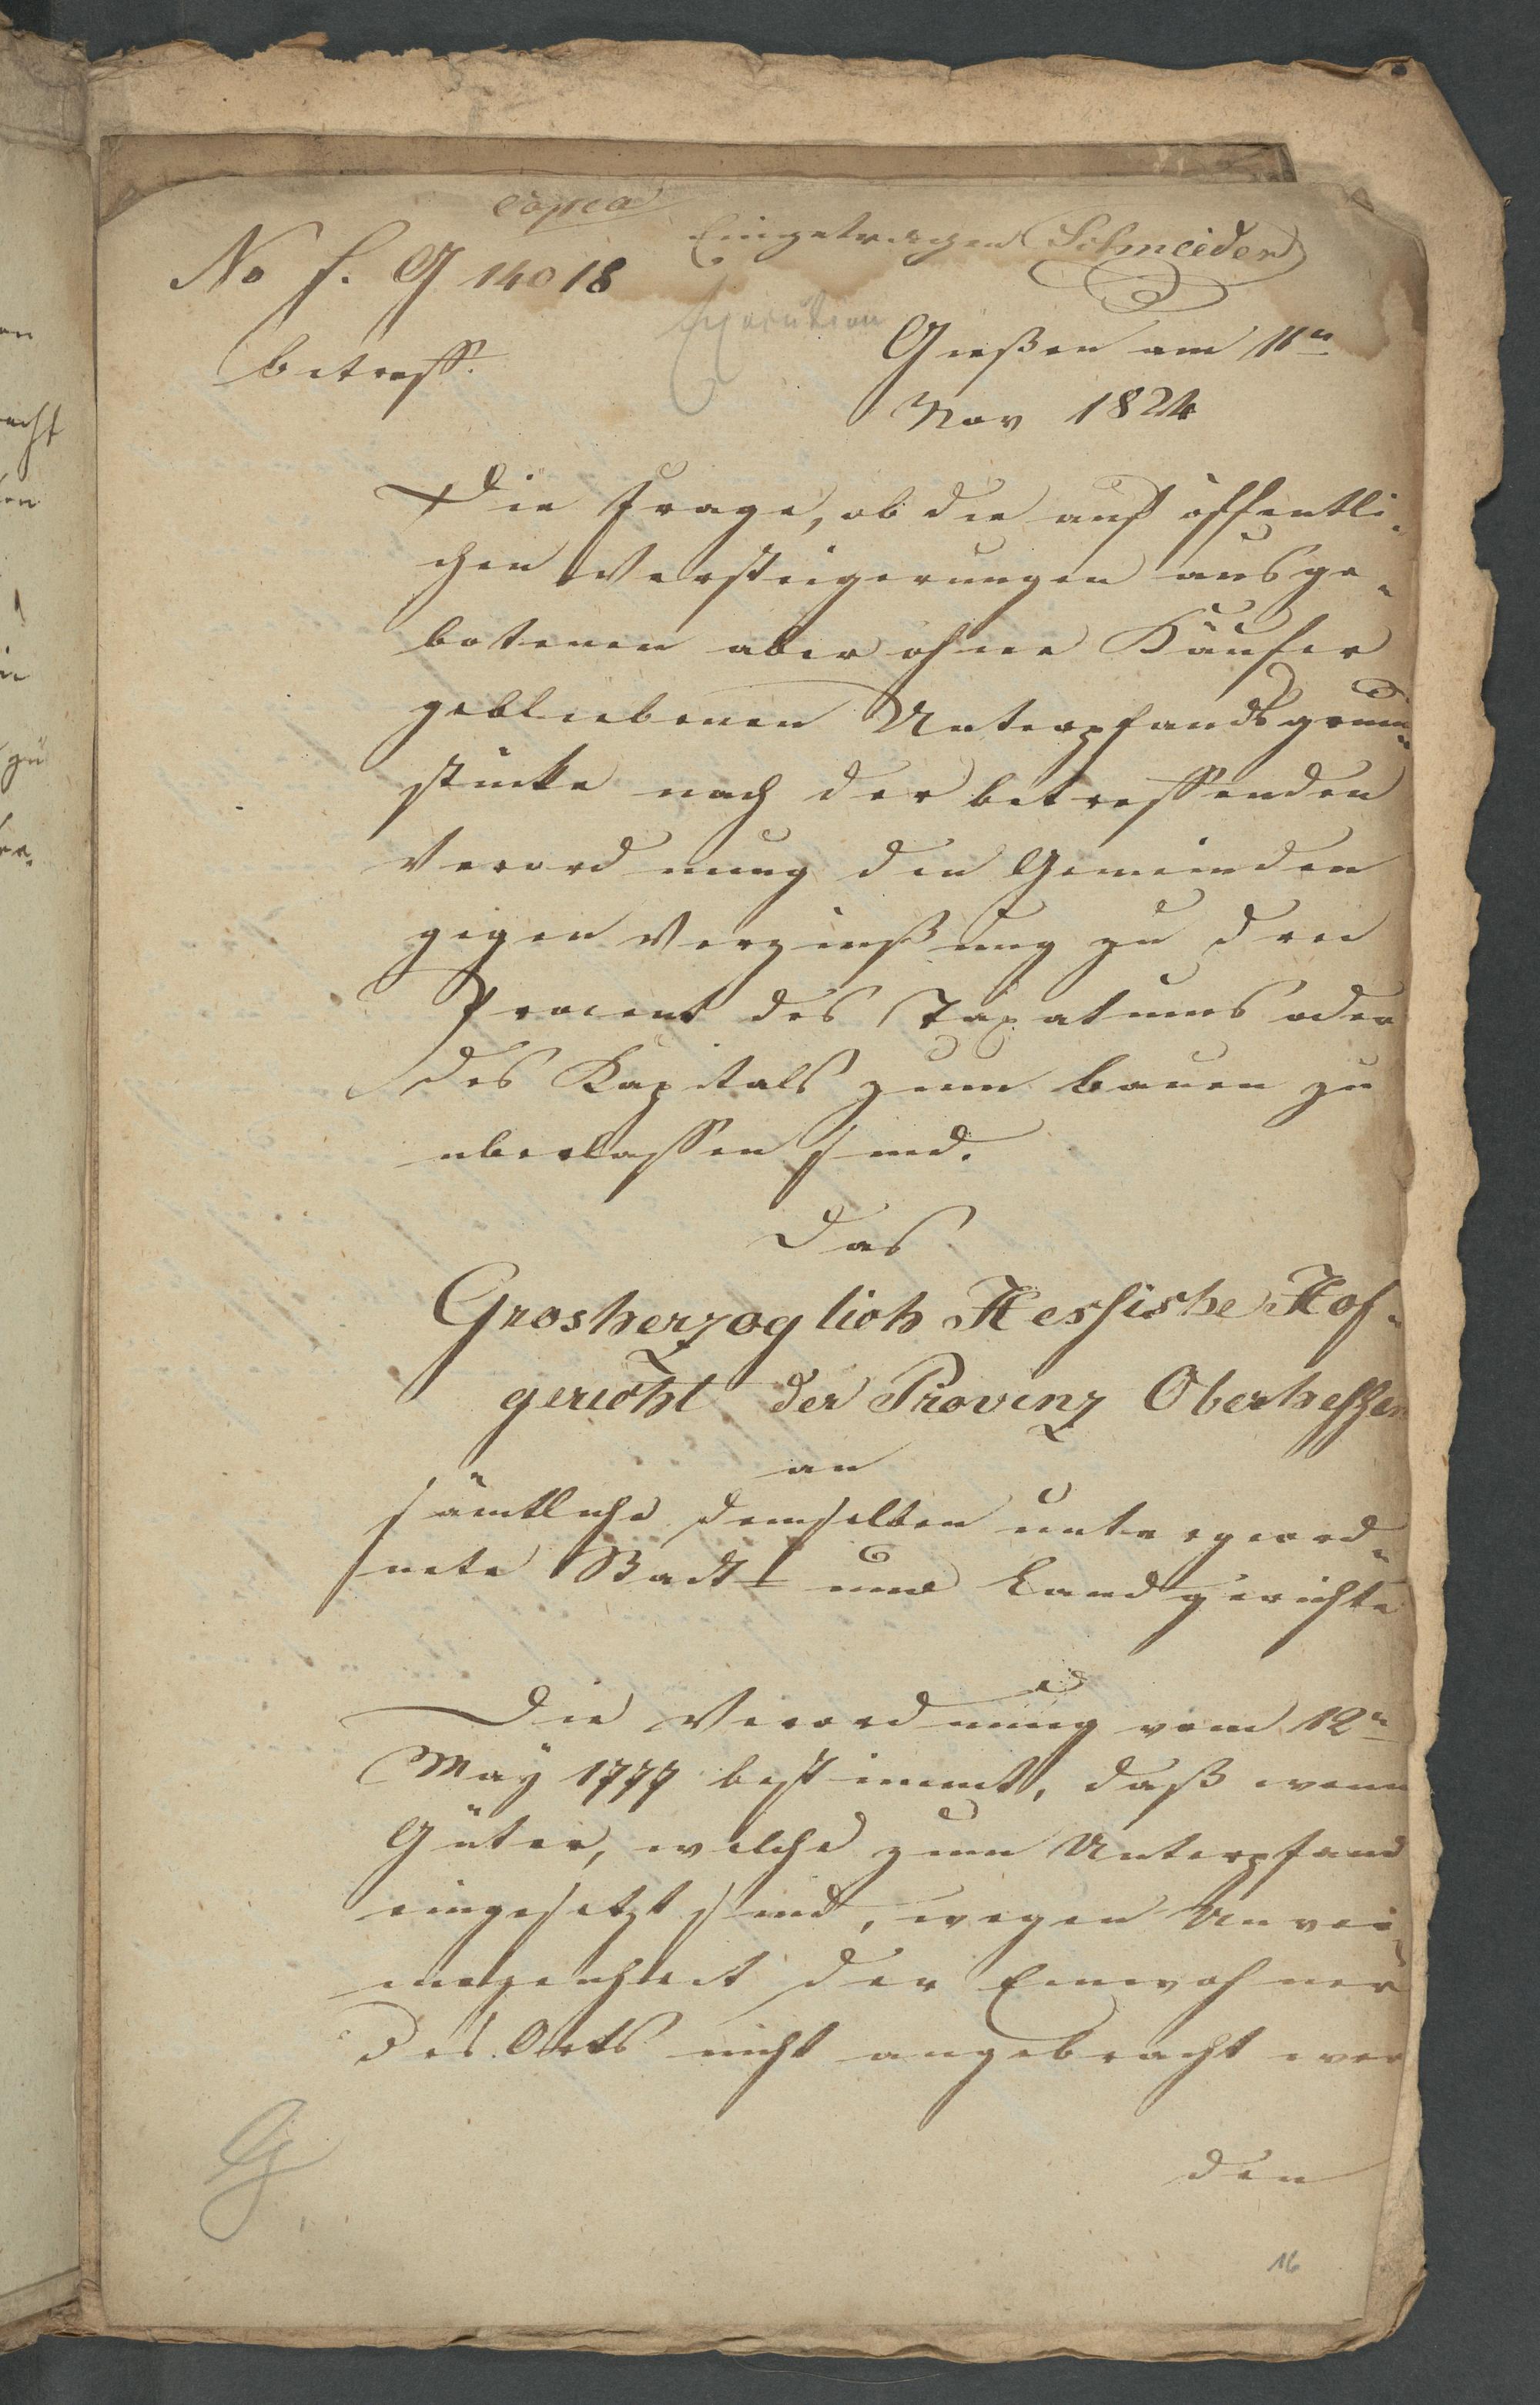 copia
Eingetragen Schneider
No f. G 14018
Execution
Gießen am 11n
betreff.
Nov 1824
Die Frage, ob die auf öffentli-
chen Versteigerungen ausge-
botenen aber ohne Käufer
gebliebenen Unterpfandsgrund-
stücke nach der betreffenden
Verordnung den Gemeinden
gegen Verzinßung zu drei
Procent des Taxatums oder
des Kapitals zum bauen zu
uberlassen sind.
Das
Grosherzoglich Hessische Hof-
gericht der Provinz Oberhessen
an
sämtliche demselben untergeord-
nete Stadt- und Landgerichte
Die Verordnung vom 12n
May 1777 bestimmt, daß wenn
Güter, welche zum Unterpfand
eingesetzt sind, wegen Unver-
mögenheit der Einwohner
des Orts nicht angebracht wer
den
16